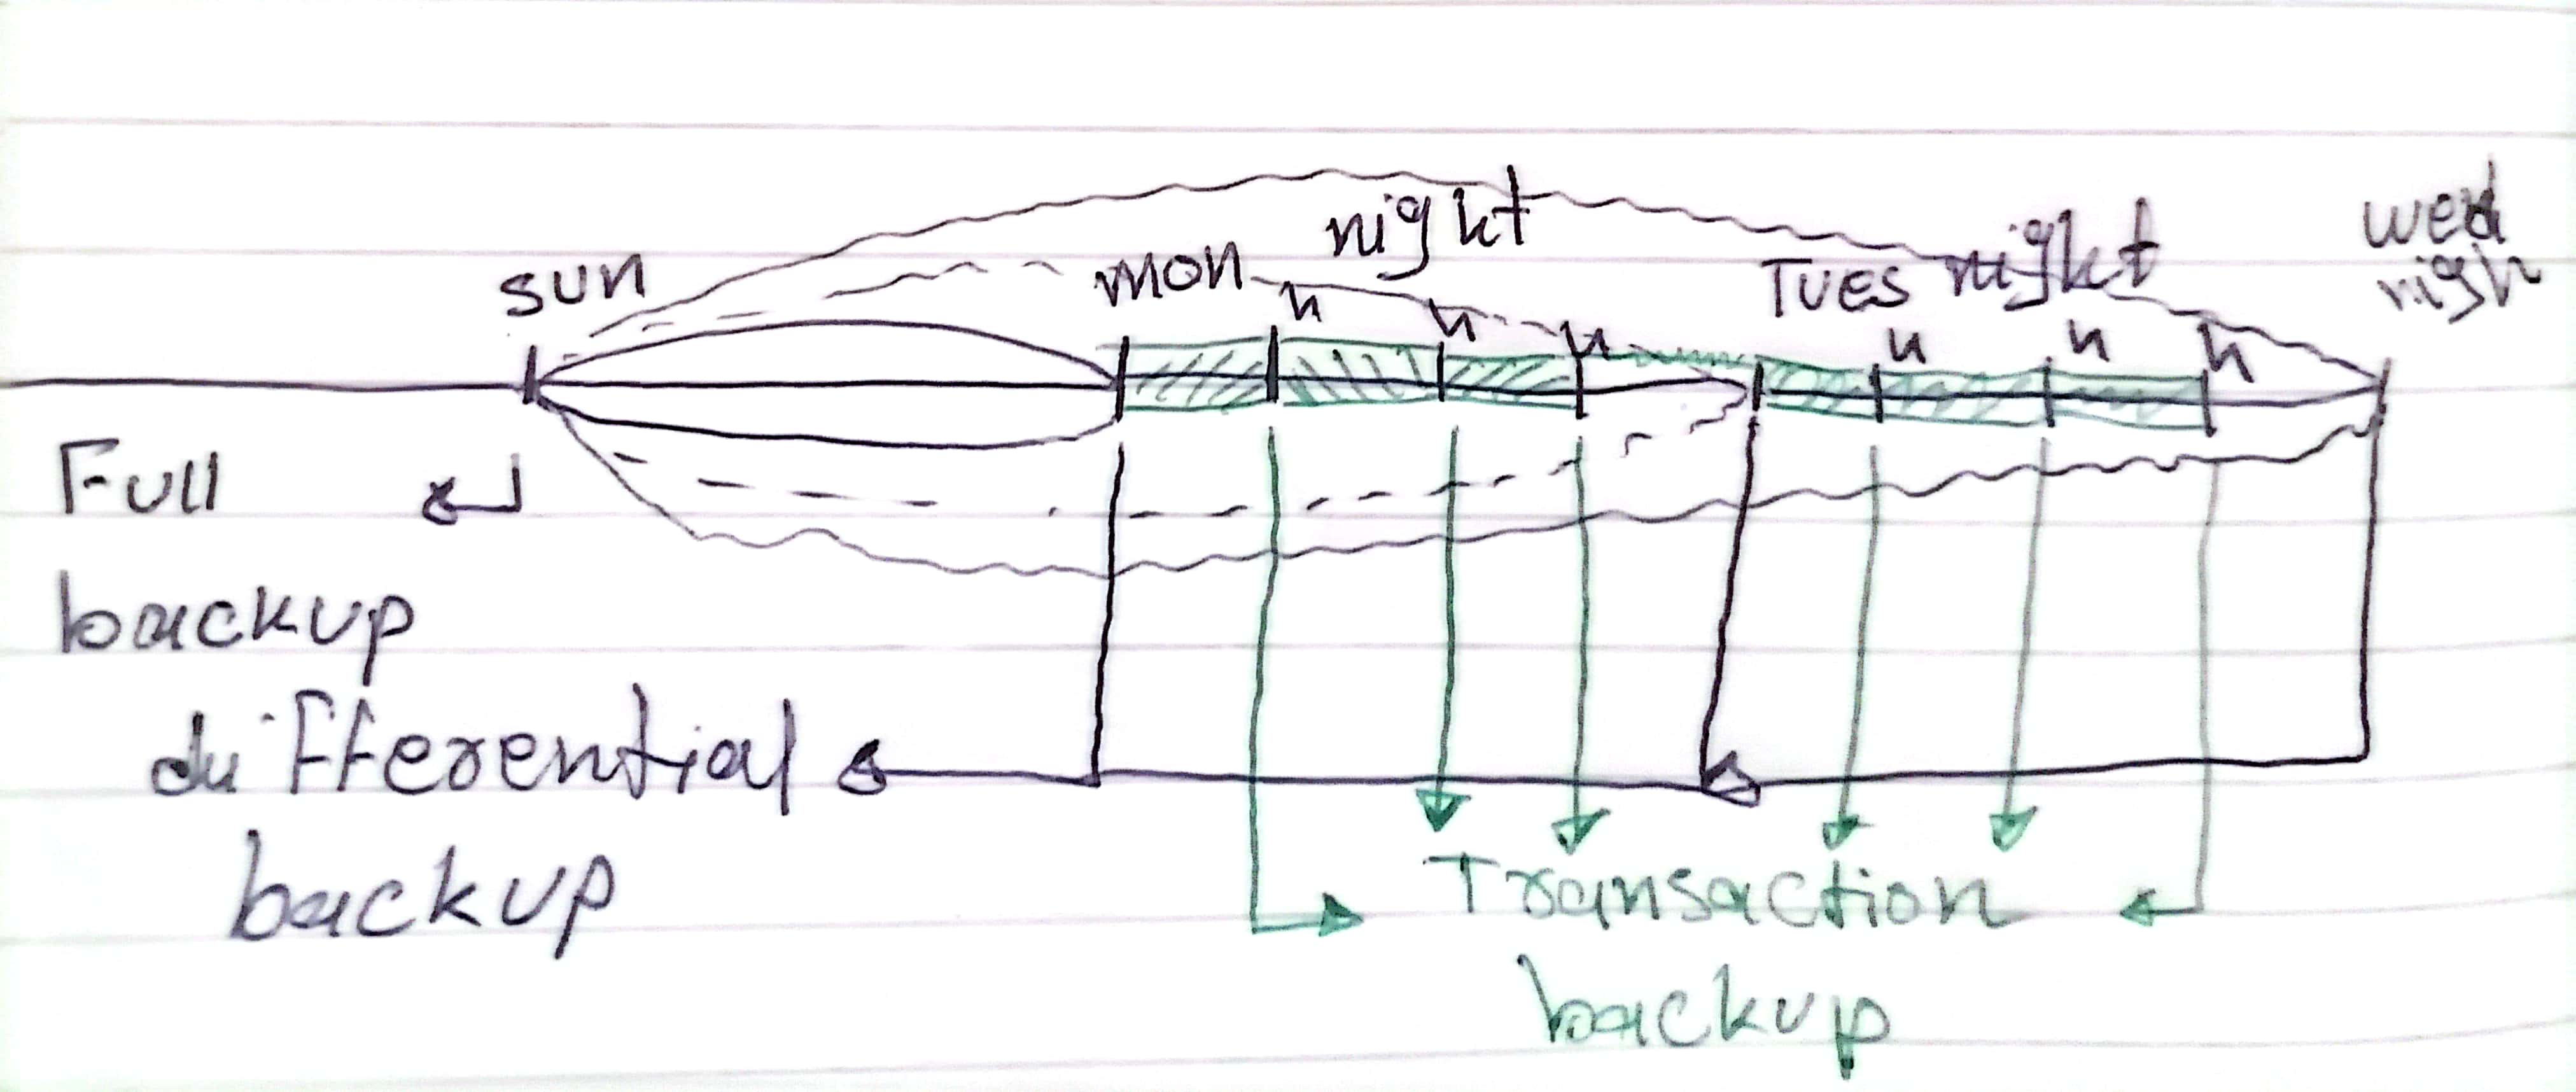 sun
mon night
Tues night
wed
nigh
n n n n n n
Full
backup
differential
backup
Transaction
backup